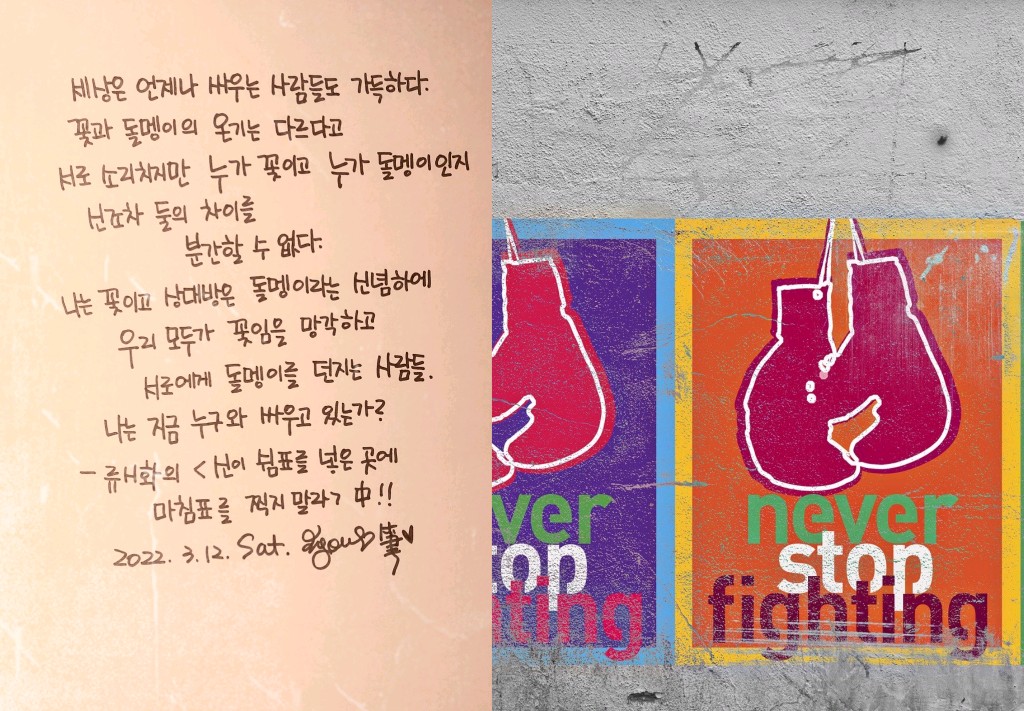 세상은 언제나 싸우는 사람들도 가득하다.
꽃과 돌멩이의 온기는 다르다고
서로 소리치지만 누가 꽃이고 누가 돌멩이인지
신조차 둘의 차이를
분간할 수 없다.
나는 꽃이고 상대방은 돌멩이라는 신념하에
우리 모두가 꽃임을 망각하고
서로에게 돌멩이를 던지는 사람들.
나는 지금 누구와 싸우고 있는가?
- 류시화의 <신이 쉼표를 넣은 곳에
마침표를 찍지 말라> 中!!
2022. 3. 12. Sat.
ver
top
hting
never
stop
fighting